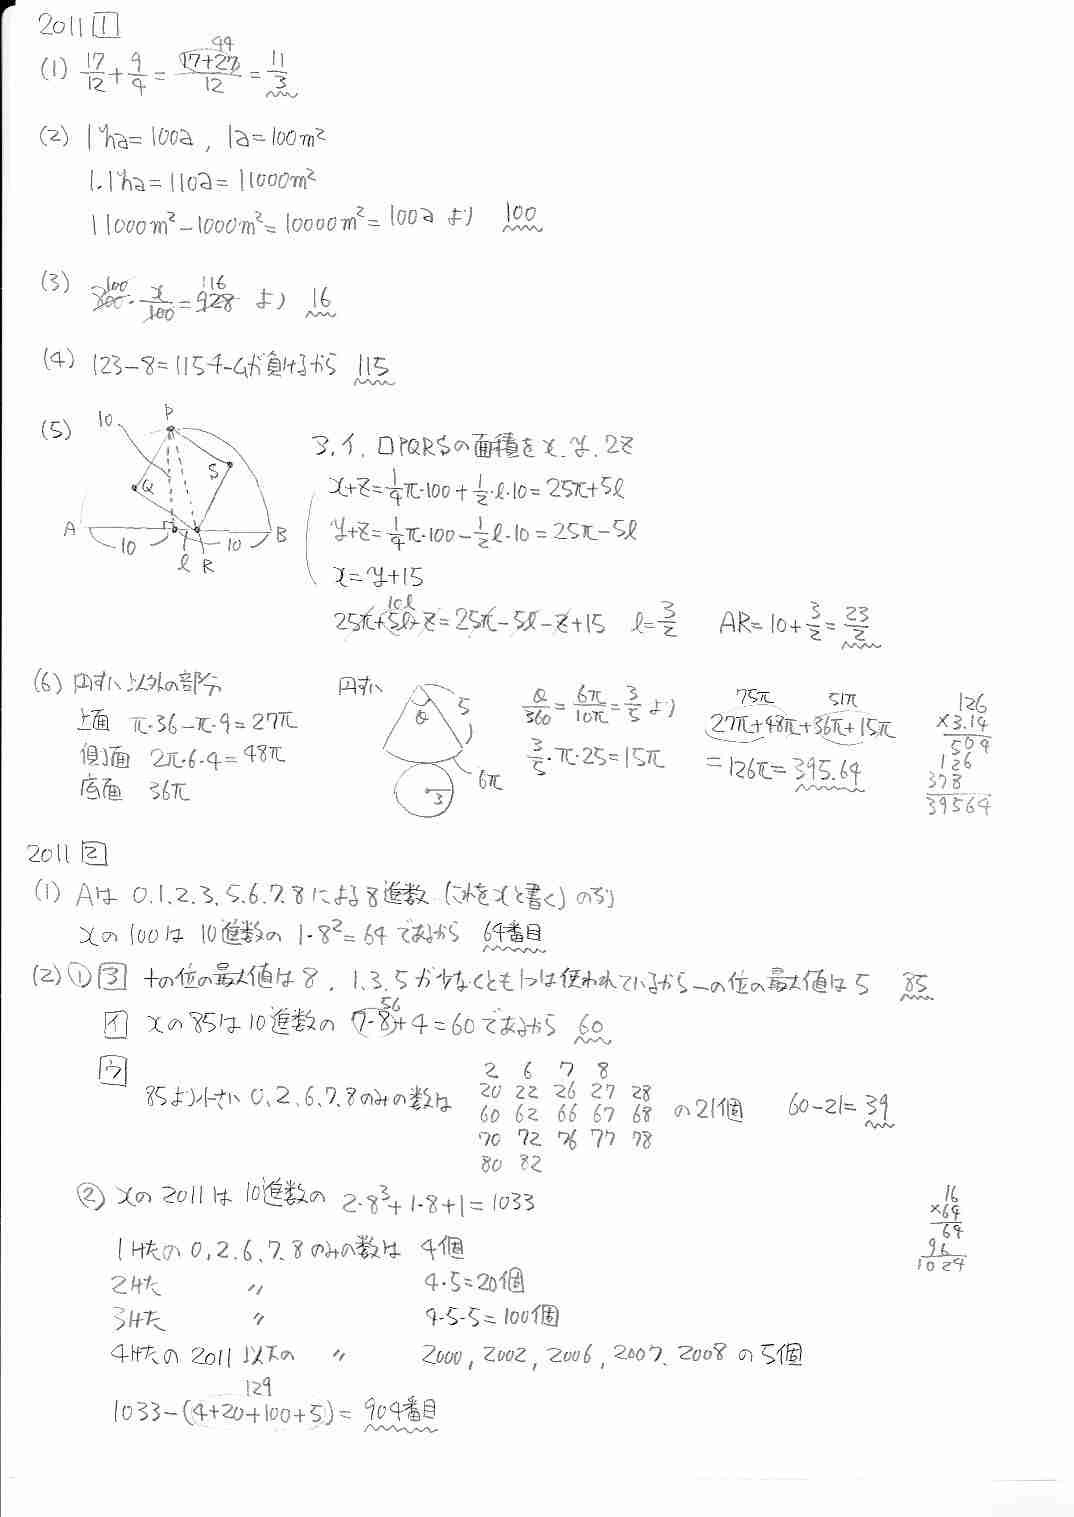 2011 1
(1) 17/12 + 9/4 = (17+27)/12 = 11/3
44
(2) 1ha=100a , 1a=100m²
1.1ha=110a=11000m²
11000m²-1000m²=10000m²=100a より 100
(3) 800・x/100=928 より 16
100 116
(4) 123-8=115チームが負けるから 115
(5) 10 P S Q A B 10 l R 10
ア、イ、□PQRSの面積をx、y、2z
x+z=1/4π・100+1/2・l・10=25π+5l
y+z=1/4π・100-1/2l・10=25π-5l
x=y+15
10l
25π+5l-z=25π-5l-z+15 l=3/2 AR=10+3/2=23/2
(6) 円すい以外の部分
上面 π・36-π・9=27π
側面 2π・6・4=48π
底面 36π
円すい θ 5 6π 3
θ/360=6π/10π=3/5 より
3/5・π・25=15π
75π 51π
27π+48π+36π+15π
=126π=395.64
126
×3.14
504
126
378
39564
2011 2
(1) Aは 0.1.2.3.5.6.7.8による8進数(これをxと書く)の列
xの100は 10進数の 1・8²=64 であるから 64番目
(2)① ア 十の位の最大値は8 , 1.3.5が少なくとも1つは使われているから一の位の最大値は5 85
イ xの85は10進数の 7・8+4=60であるから 60
56
ウ
85より小さい 0、2、6、7、8のみの数は
2 6 7 8
20 22 26 27 28
60 62 66 67 68
70 72 76 77 78
80 82
の21個 60-21=39
② xの2011は 10進数の 2・8³+1・8+1=1033
16
×64
64
96
1024
1けたの0,2、6、7、8のみの数は 4個
2けた 〃 4・5=20個
3けた 〃 4・5・5=100個
4けたの2011以下の 〃 2000, 2002, 2006, 2007、2008の5個
129
1033-(4+20+100+5)= 904番目